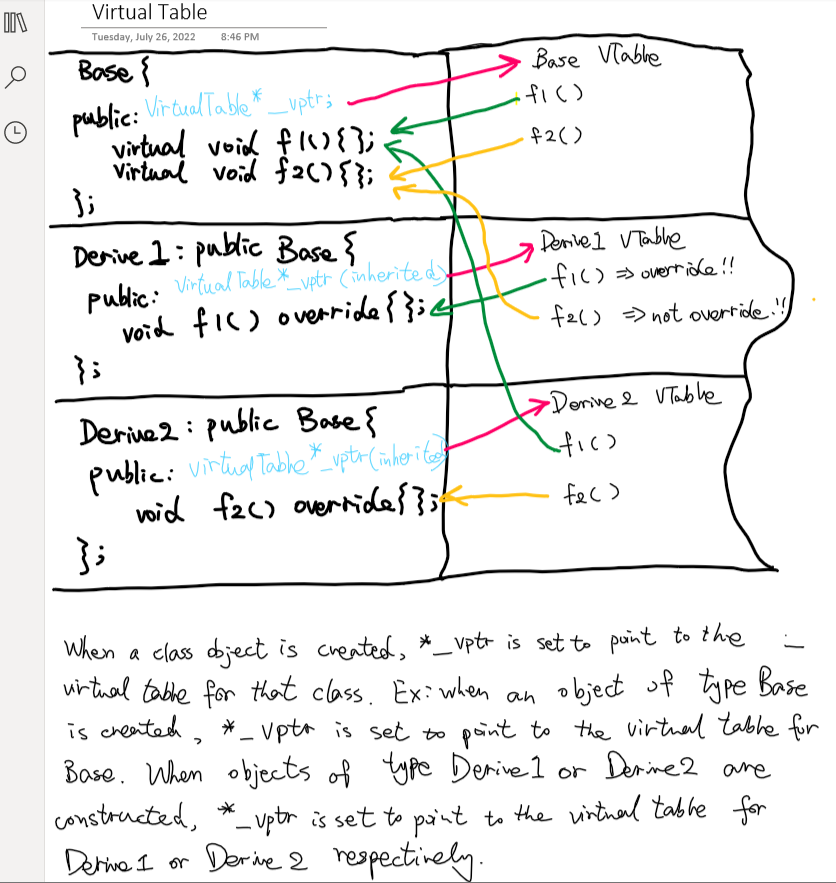 Virtual Table
Tuesday, July 26, 2022 8:46 PM
Base {
public: VirtualTable* _vptr;
virtual void f1(){};
virtual void f2(){};
};
Base VTable
f1()
f2()
Derive1 : public Base {
public: VirtualTable*_vptr (inherited)
void f1() override{};
};
Derive1 VTable
f1() => override!!
f2() => not override!!
Derive2 : public Base {
public: VirtualTable*_vptr(inherited)
void f2() override{};
};
Derive2 VTable
f1()
f2()
When a class object is created, *_vptr is set to point to the
virtual table for that class. Ex: when an object of type Base
is created, *_vptr is set to point to the virtual table for
Base. When objects of type Derive1 or Derive2 are
constructed, *_vptr is set to point to the virtual table for
Derive1 or Derive2 respectively.